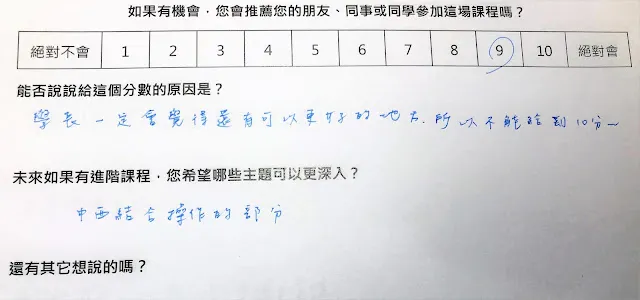 如果有機會，您會推薦您的朋友、同事或同學參加這場課程嗎？
絕對不會 1 2 3 4 5 6 7 8 9 10 絕對會
能否說說給這個分數的原因是？
學長一定會覺得還有可以更好的地方，所以不能給到10分~
未來如果有進階課程，您希望哪些主題可以更深入？
中西結合操作的部分
還有其它想說的嗎？